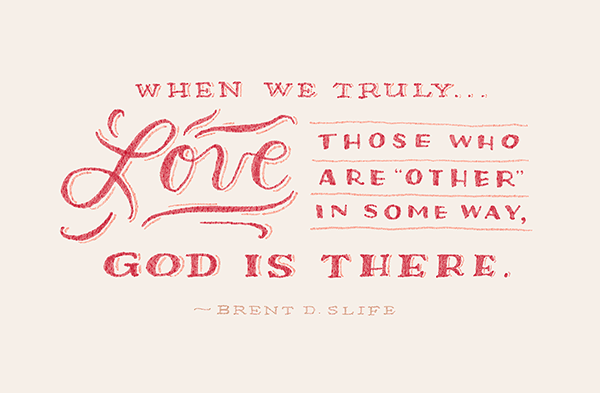 WHEN WE TRULY...
Love
THOSE WHO
ARE "OTHER"
IN SOME WAY,
GOD IS THERE.
~BRENT D. SLIFE